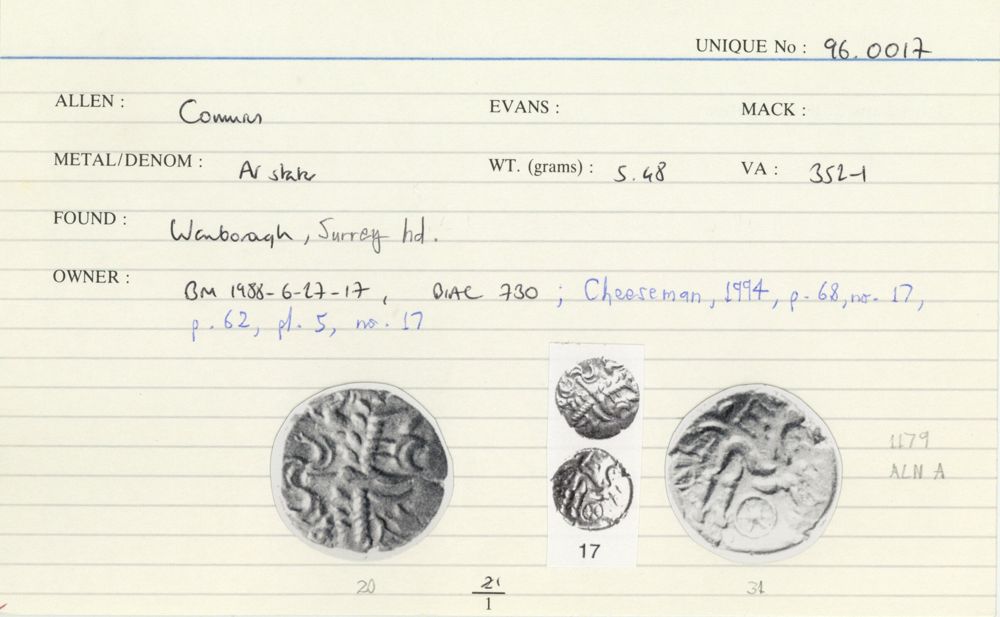 UNIQUE No : 96.0017
ALLEN : Commius EVANS : MACK :
METAL/DENOM : AV stater WT. (grams) : 5.48 VA : 352-1
FOUND : Wanborough, Surrey hd.
OWNER : BM 1988-6-27-17, 730 ; Cheeseman, 1994, p. 68, no. 17,
p. 62, pl. 5, no. 17
1179
ALN A
17
20 21 31
1